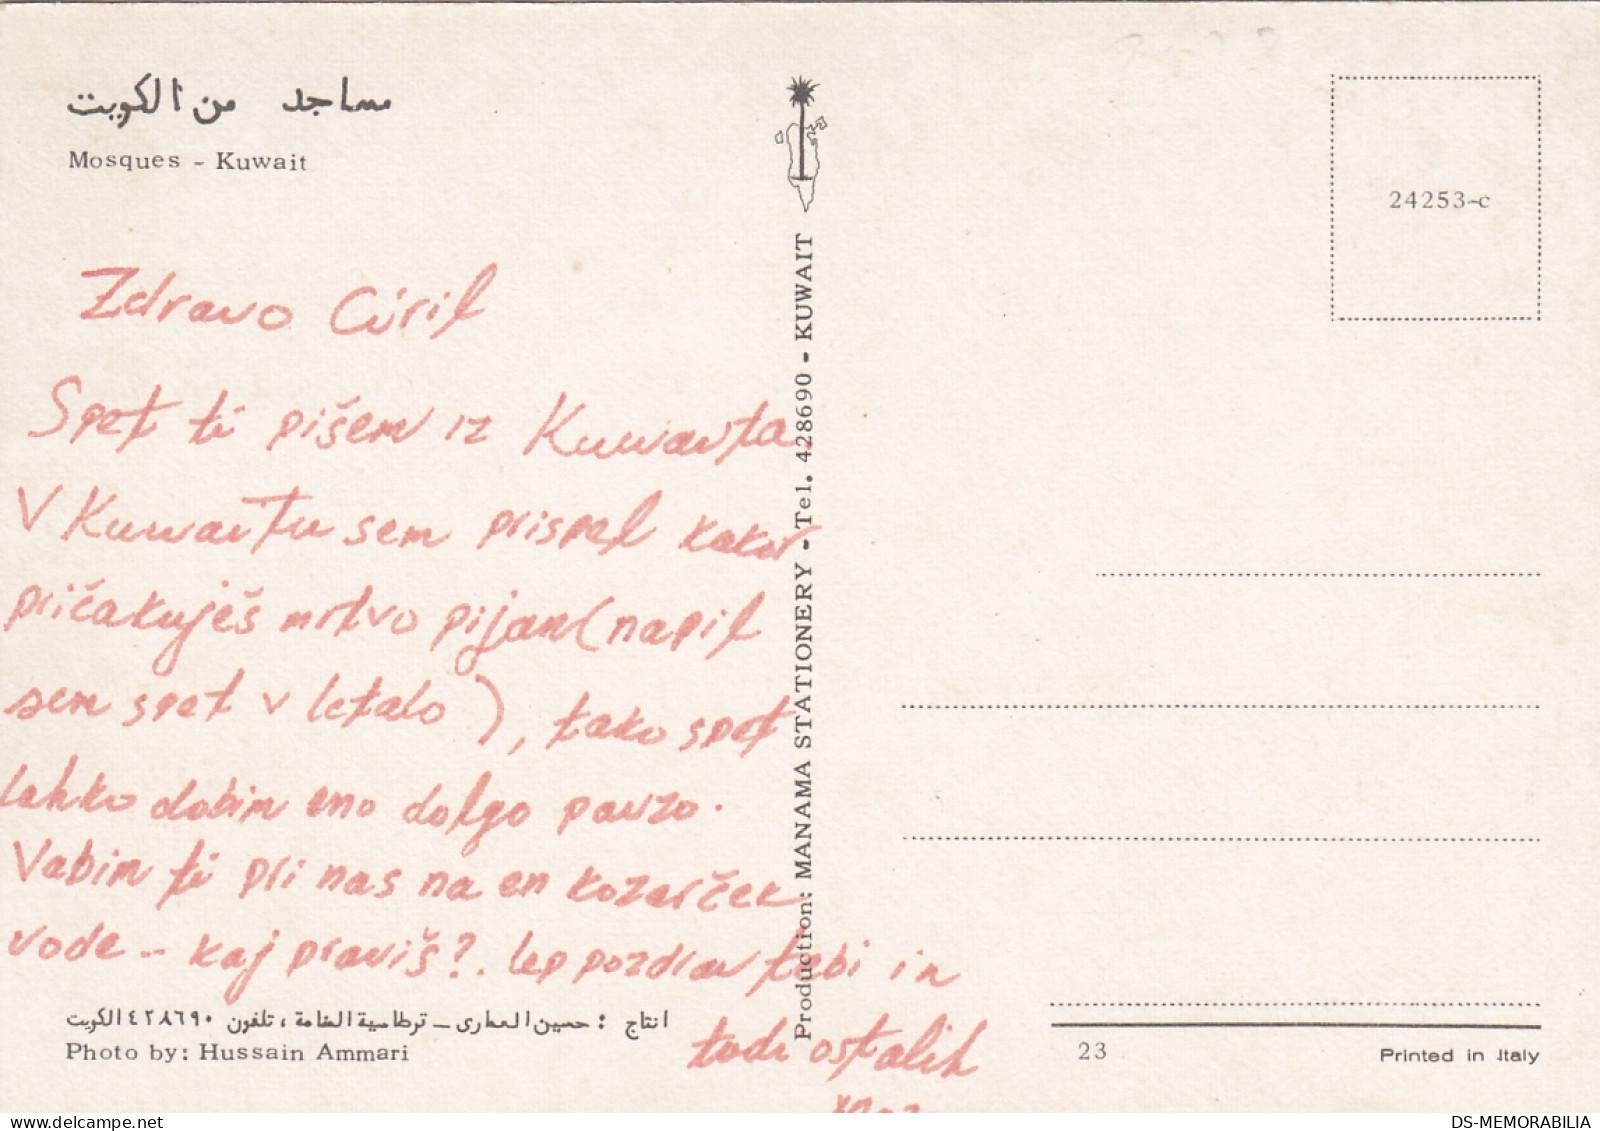 مساجد من الكويت
Mosques - Kuwait
24253-c
Zdravo Ciril
Spet ti pišem iz Kuwaita.
V Kuwaitu sem prispel kakor
pričakuješ mrtvo pijan (napil
sem spet v letalo), tako spet
lahko dobim eno dolgo pauzo.
Vabim ti pri nas na en kozarček
vode - kaj praviš?. Lep pozdrav tebi in
tudi ostalih
Production: MANAMA STATIONERY - Tel. 428690 - KUWAIT
انتاج : حسين العماري - قرطاسية المنامة ، تلفون ٤٢٨٦٩٠ الكويت
Photo by: Hussain Ammari
23
Printed in Italy
DS-MEMORABILIA